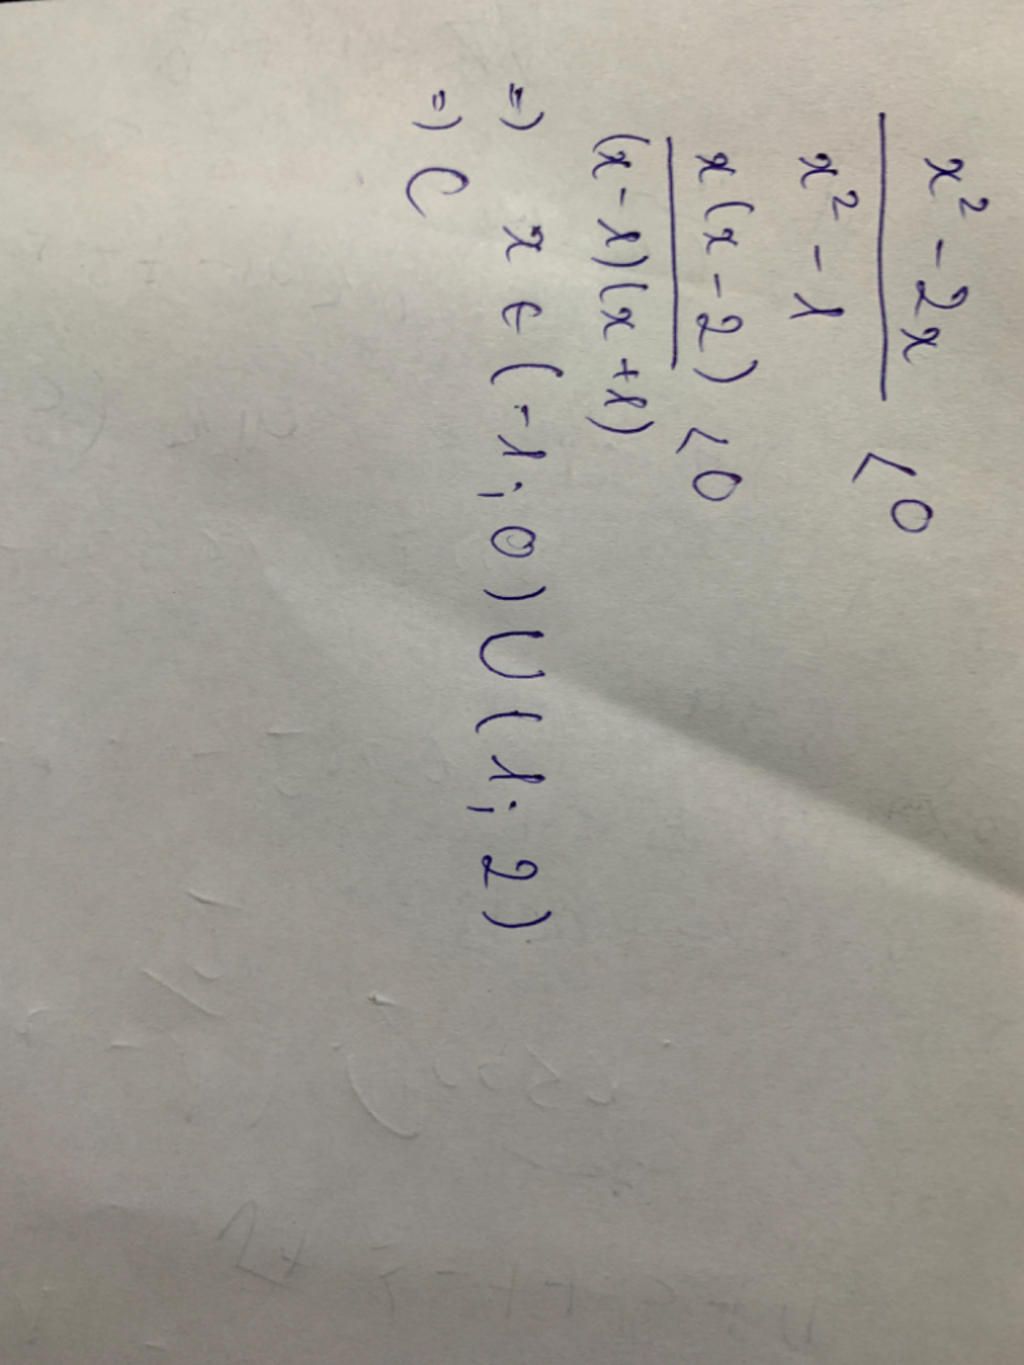 x² - 2x
x² - 1 < 0
x(x - 2)
(x - 1)(x + 1) < 0
=) x ∈ (-1; 0) U (1; 2)
=) C